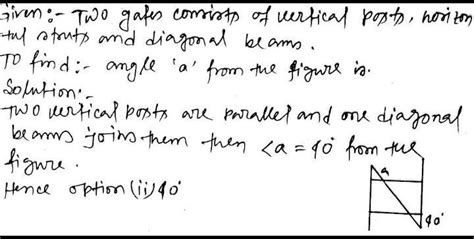 Given:- Two gates consists of vertical posts, horizon
tal struts and diagonal beams.
To find:- angle 'a' from the figure is.
Solution:-
Two vertical posts are parallel and one diagonal
beams joins them then <a = 40° from the
figure.
Hence option (ii) 40°
a
40°